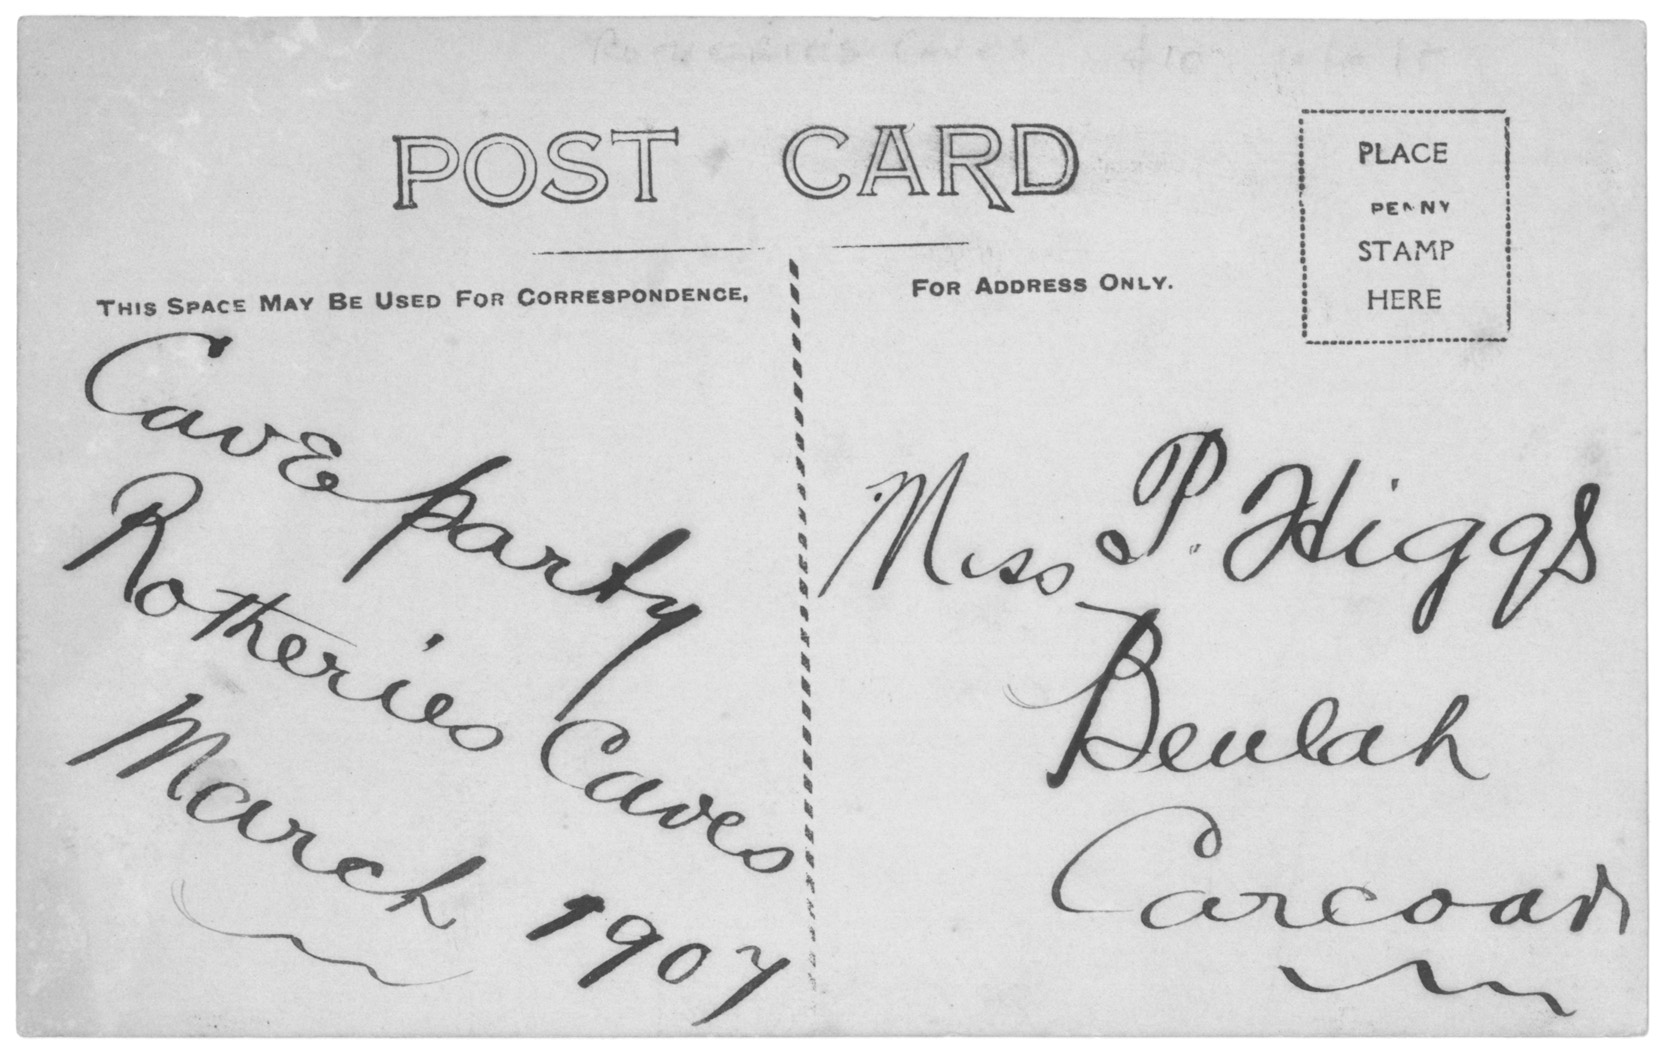 POST CARD
PLACE
PENNY
STAMP
HERE
THIS SPACE MAY BE USED FOR CORRESPONDENCE,
FOR ADDRESS ONLY.
Cave party
Rotheries Caves
March 1907
Miss P. Higgs
Beulah
Carcoar